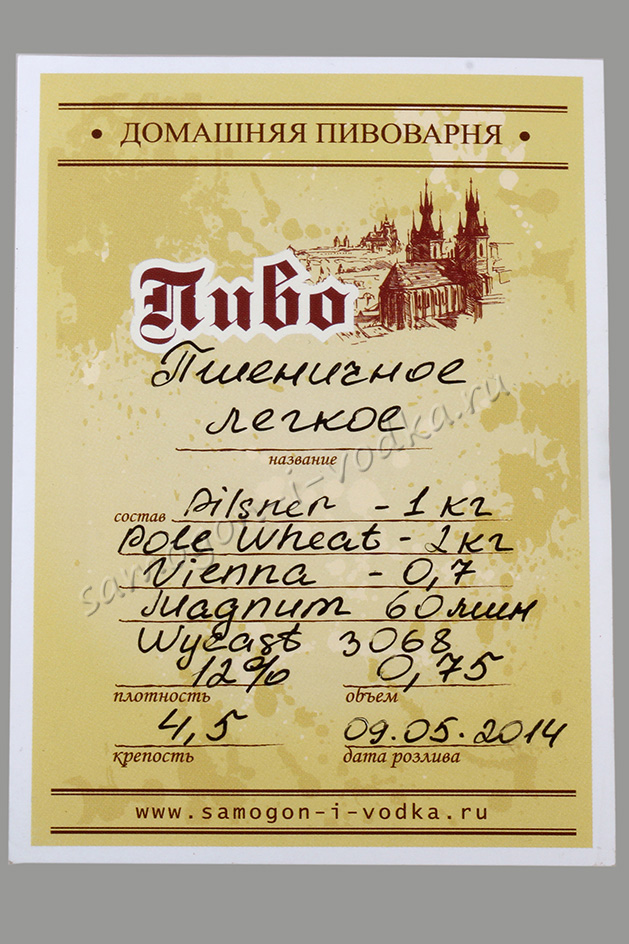 • ДОМАШНЯЯ ПИВОВАРНЯ •
Пиво
Пшеничное
легкое
название
состав Pilsner - 1 кг
Pale Wheat - 2 кг
Vienna - 0,7
Magnum 60 мин
Wyeast 3068
12% 0,75
плотность объем
4,5 09.05.2014
крепость дата розлива
www.samogon-i-vodka.ru
samogon-i-vodka.ru